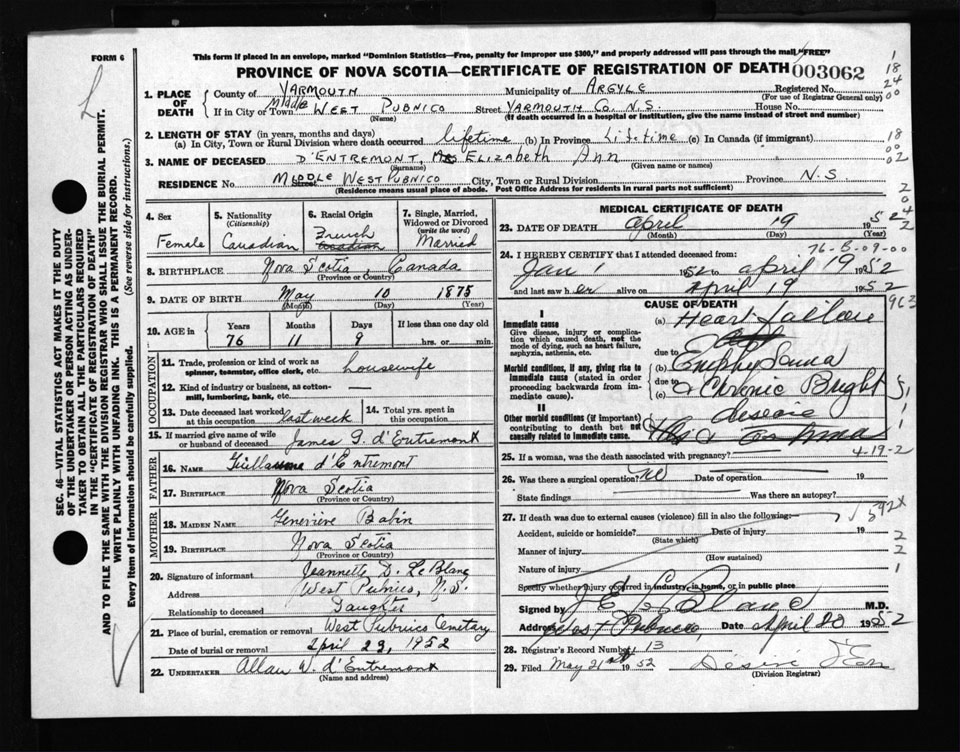 FORM 6
This form if placed in an envelope, marked "Dominion Statistics—Free, penalty for improper use $300," and properly addressed will pass through the mail "FREE"
PROVINCE OF NOVA SCOTIA—CERTIFICATE OF REGISTRATION OF DEATH
003062
1. PLACE OF DEATH
County of YARMOUTH Municipality of ARGYLE Registered No.
(For use of Registrar General only)
If in City or Town Middle WEST PUBNICO Street YARMOUTH CO. N.S. House No.
(Name) (If death occurred in a hospital or institution, give the name instead of street and number)
2. LENGTH OF STAY (in years, months and days)
(a) In City, Town or Rural Division where death occurred lifetime (b) In Province Lifetime (c) In Canada (if immigrant)
3. NAME OF DECEASED D'ENTREMONT, ELIZABETH Ann
(Surname) (Given name or names)
RESIDENCE No. MIDDLE Street WEST PUBNICO City, Town or Rural Division Province N.S.
(Residence means usual place of abode. Post Office Address for residents in rural parts not sufficient)
4. Sex
Female
5. Nationality (Citizenship)
Canadian
6. Racial Origin
French
7. Single, Married, Widowed or Divorced (write the word)
Married
8. BIRTHPLACE Nova Scotia, Canada
(Province or Country)
9. DATE OF BIRTH May 10 1875
(Month) (Day) (Year)
10. AGE in Years Months Days If less than one day old
76 11 9 hrs. or min.
OCCUPATION
11. Trade, profession or kind of work as spinner, teamster, office clerk, etc. housewife
12. Kind of industry or business, as cotton-mill, lumbering, bank, etc. —
13. Date deceased last worked at this occupation last week
14. Total yrs. spent in this occupation
15. If married give name of wife or husband of deceased James G. d'Entremont
FATHER
16. NAME Guillaume d'Entremont
17. BIRTHPLACE Nova Scotia
(Province or Country)
MOTHER
18. MAIDEN NAME Geneviève Babin
19. BIRTHPLACE Nova Scotia
(Province or Country)
20. Signature of informant Jeannette D. LeBlanc
Address West Pubnico, N.S.
Relationship to deceased Daughter
21. Place of burial, cremation or removal West Pubnico Cemetary
Date of burial or removal April 23, 1952
22. UNDERTAKER Allan W. d'Entremont
(Name and address)
MEDICAL CERTIFICATE OF DEATH
23. DATE OF DEATH April 19 52
(Month) (Day) (Year)
76-5-09-00
24. I HEREBY CERTIFY that I attended deceased from:
Jan 1 1952 to April 19 1952
and last saw her alive on April 19 1952
CAUSE OF DEATH
I
Immediate cause
Give disease, injury or complication which caused death, not the mode of dying, such as heart failure, asphyxia, asthenia, etc.
(a) Heart failure
due to
Morbid conditions, if any, giving rise to immediate cause (stated in order proceeding backwards from immediate cause).
(b) Emphysema
due to
(c) Chronic Bright
disease
II
Other morbid conditions (if important) contributing to death but not causally related to immediate cause.
25. If a woman, was the death associated with pregnancy?
4-19-2
26. Was there a surgical operation? no Date of operation 19
State findings Was there an autopsy?
27. If death was due to external causes (violence) fill in also the following:
592X
Accident, suicide or homicide? Date of injury 19
(State which)
Manner of injury
(How sustained)
Nature of injury
Specify whether injury occurred in industry, in home, or in public place
Signed by M.D.
Address West Pubnico, Date April 20 1952
28. Registrar's Record Number 13
29. Filed May 21st 1952 Désiré d'En
(Division Registrar)
SEC. 46—VITAL STATISTICS ACT MAKES IT THE DUTY
OF THE UNDERTAKER OR PERSON ACTING AS UNDER-
TAKER TO OBTAIN ALL THE PARTICULARS REQUIRED
IN THE "CERTIFICATE OF REGISTRATION OF DEATH"
AND TO FILE THE SAME WITH THE DIVISION REGISTRAR WHO SHALL ISSUE THE BURIAL PERMIT.
WRITE PLAINLY WITH UNFADING INK. THIS IS A PERMANENT RECORD.
Every item of information should be carefully supplied. (See reverse side for instructions.)